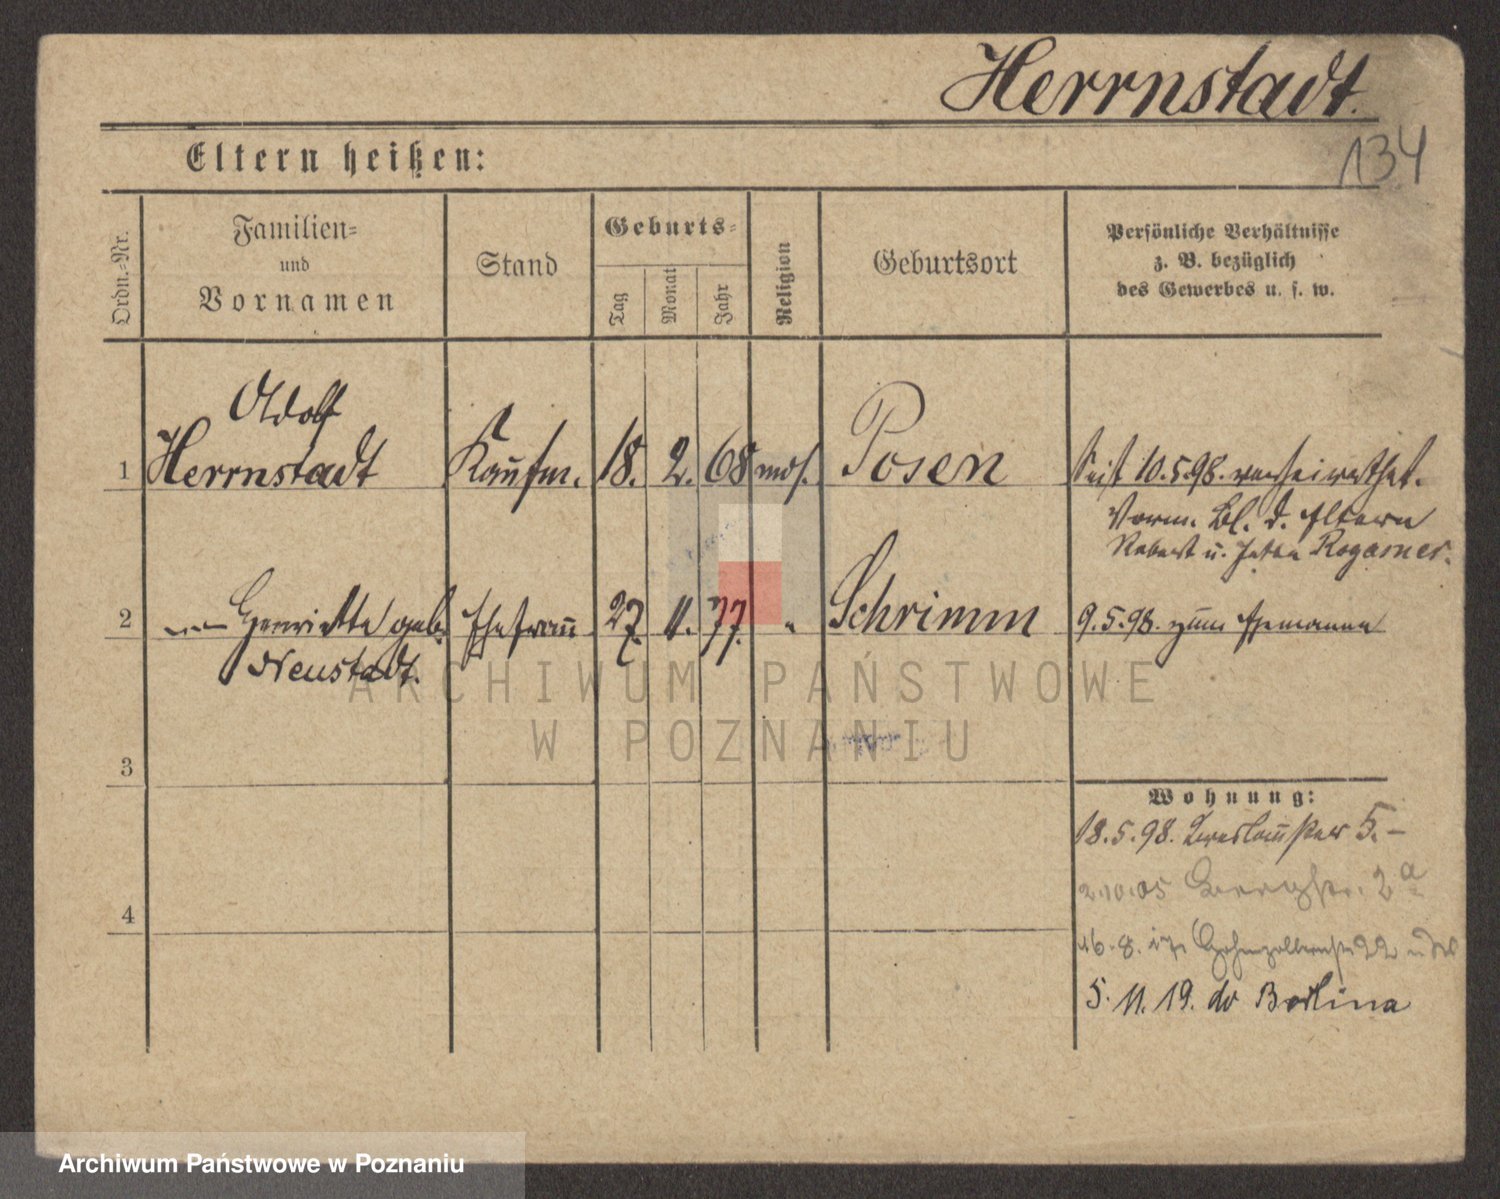 Herrnstadt.
134
Eltern heißen:
Ordn.-Nr.
Familien-
und
Vornamen
Stand
Geburts-
Tag
Monat
Jahr
Religion
Geburtsort
Persönliche Verhältnisse
z. B. bezüglich
des Gewerbes u. s. w.
Adolf
1 Herrnstadt Kaufm. 18. 2. 68 mos. Posen Seit 10.5.98. verheirathet.
Vorm. Bl. d. Eltern
u. Rogasner.
2 Henriette geb. Ehefrau 27. 11. 77. " Schrimm 9.5.98. zum Ehemanne
Neustadt.
3
Wohnung:
18.5.98. Breslauerstr 5.-
2.10.05 Bergstr. 2a
4
16.8.17. Hohenzollernstr 22
5.11.19. do Berlina
ARCHIWUM PAŃSTWOWE
W POZNANIU
Archiwum Państwowe w Poznaniu